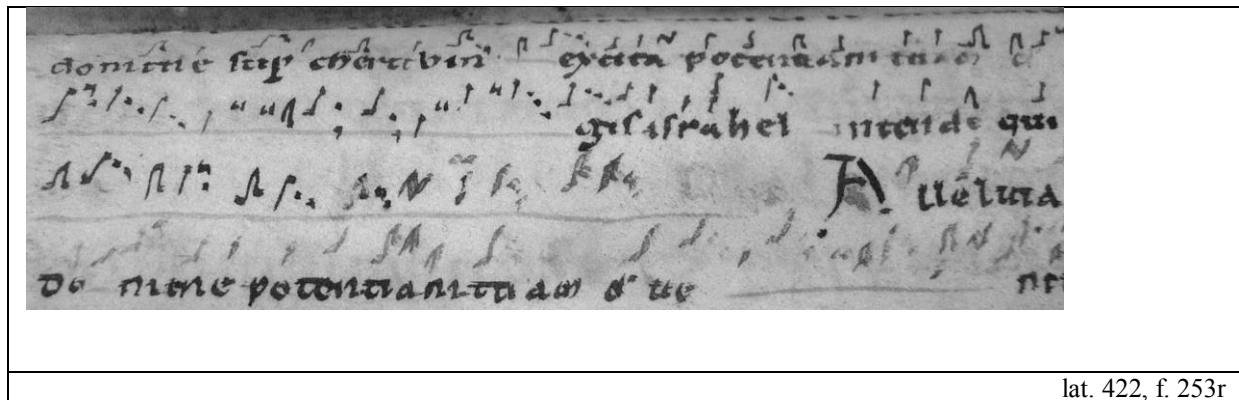 domine sup cherubin excita potentiam tuam &
gis israhel intende qui
Alleluia
Do mine potentiam tuam & ue ni
lat. 422, f. 253r